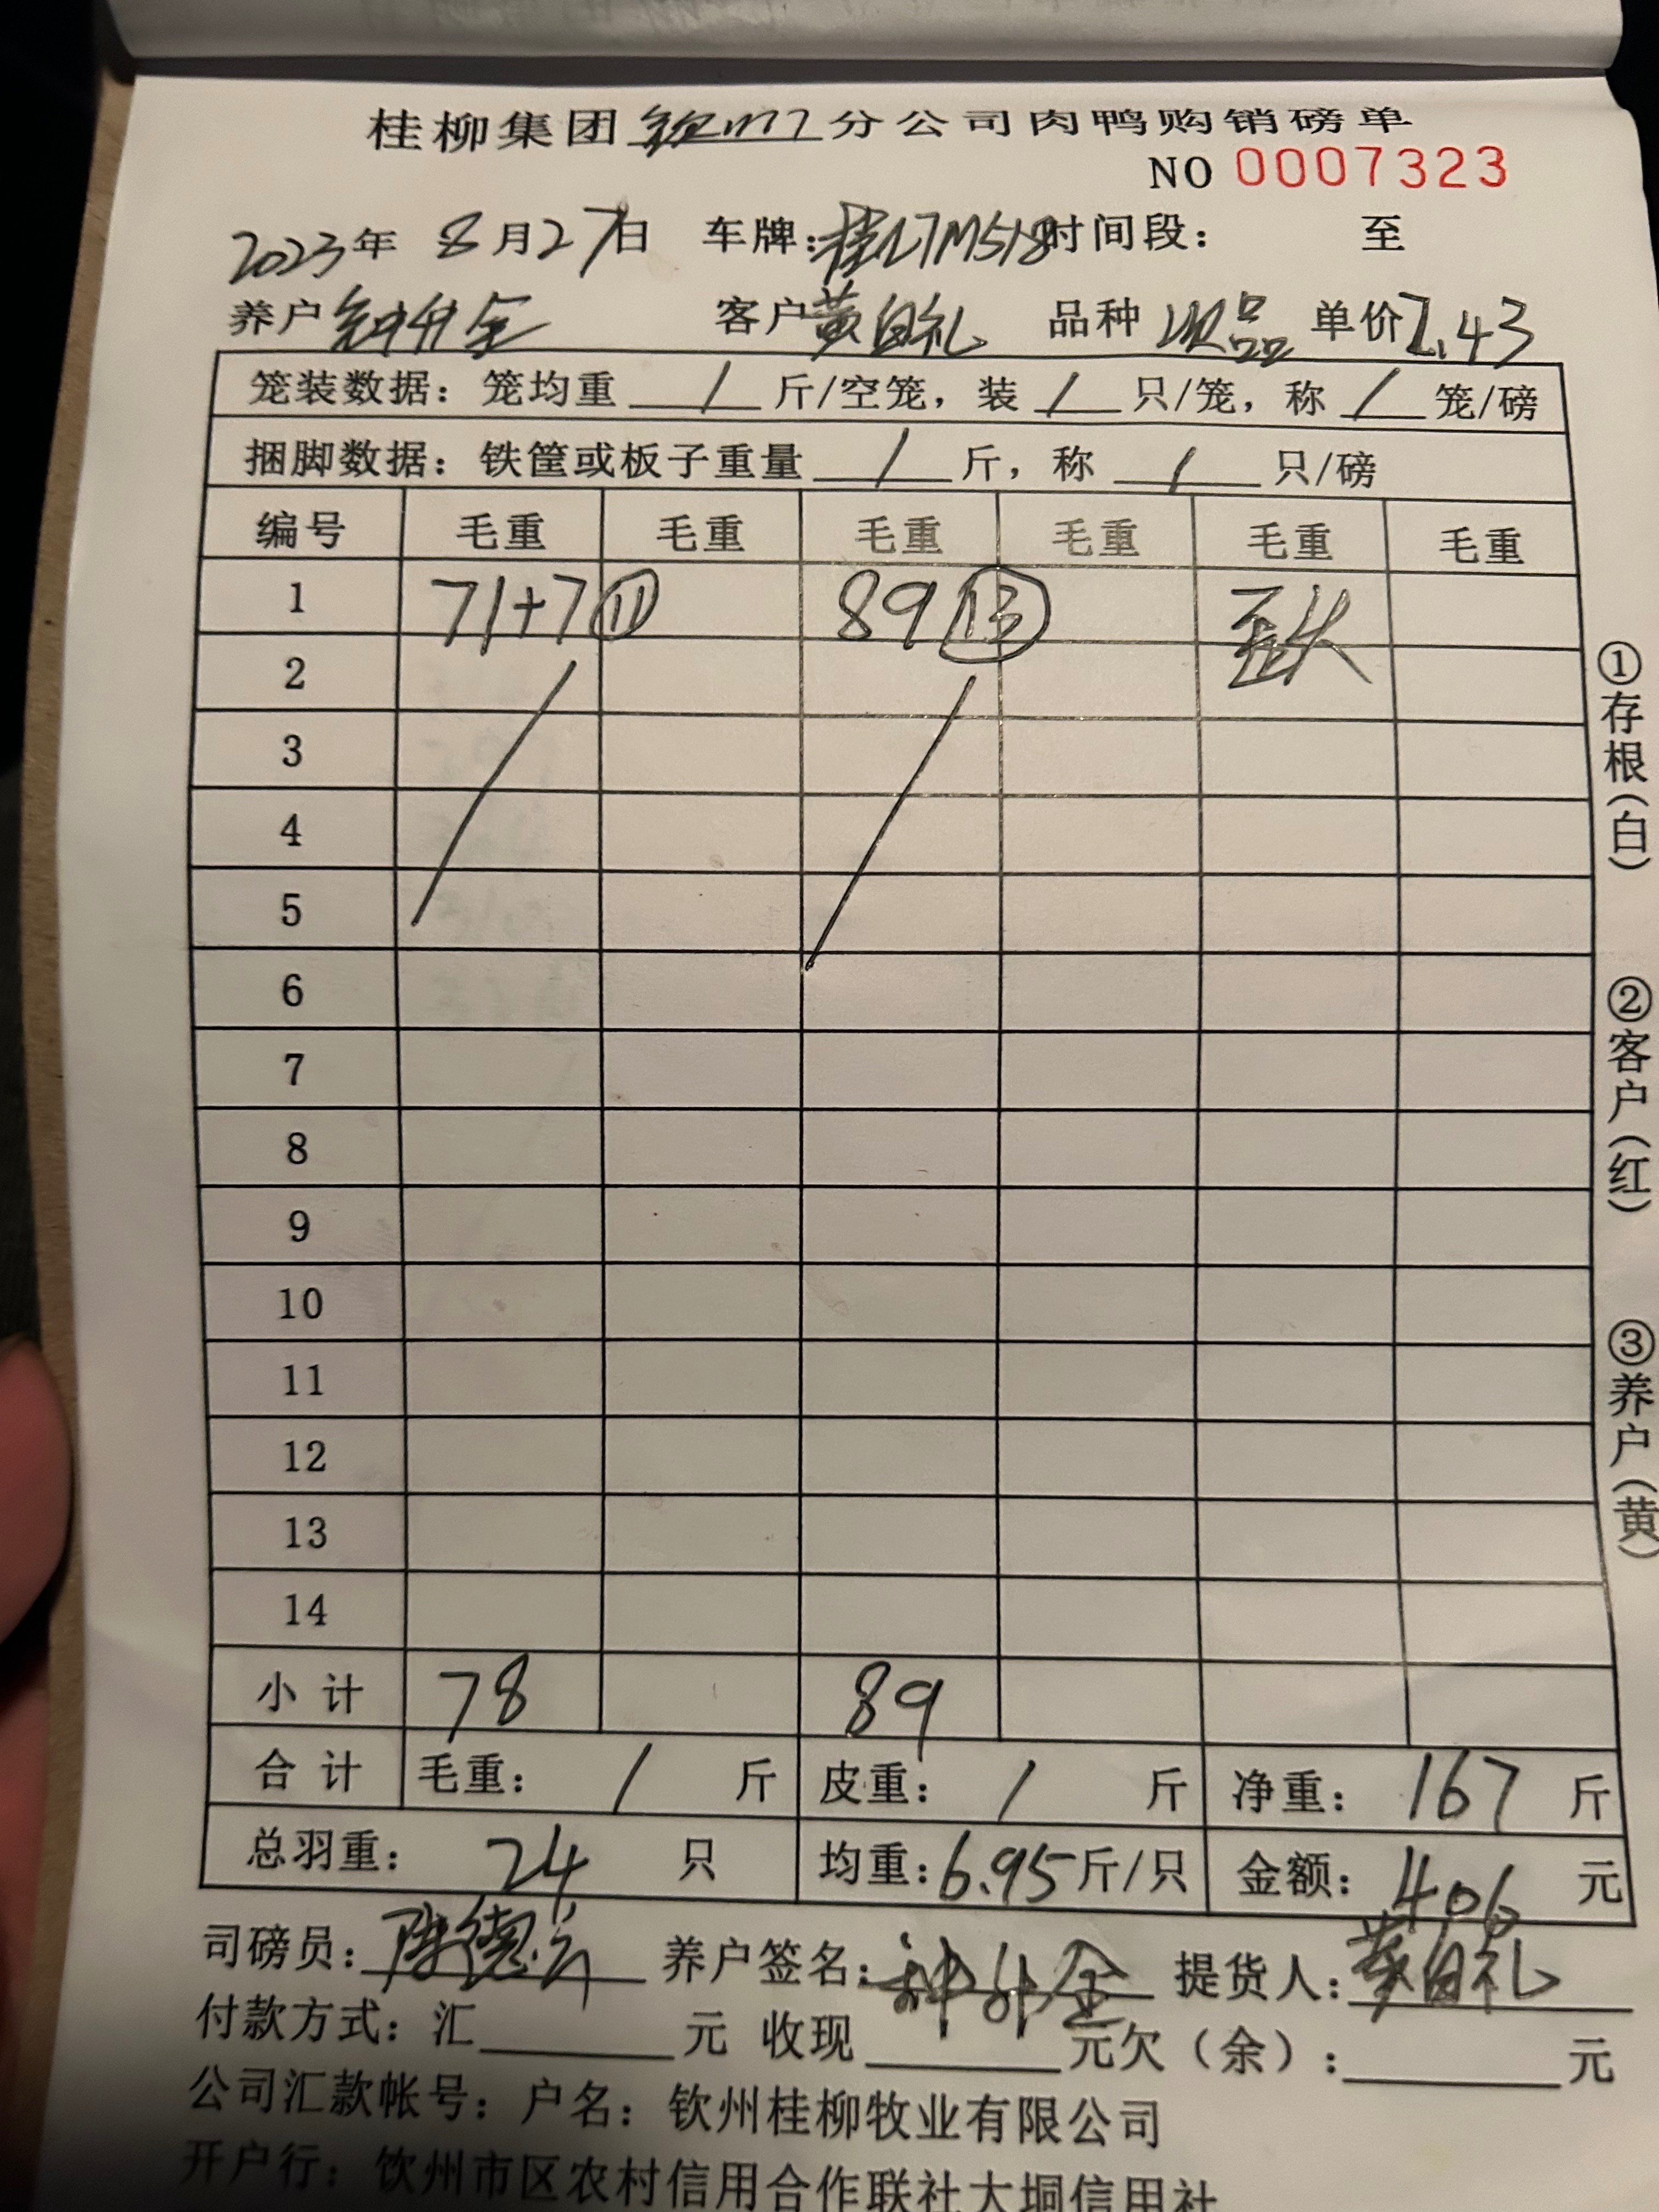 桂柳集团钦州分公司肉鸭购销磅单
NO 0007323
2023年 8月27日 车牌:桂L7M518时间段: 至
养户 钟升金 客户黄自礼 品种 次品 单价2.43
笼装数据: 笼均重 / 斤/空笼, 装 / 只/笼, 称 / 笼/磅
捆脚数据: 铁筐或板子重量 / 斤, 称 / 只/磅
编号 毛重 毛重 毛重 毛重 毛重 毛重
1 71+7⑪ 89⑬
2
3
4
5
6
7
8
9
10
11
12
13
14
小计 78 89
合计 毛重: / 斤 皮重: / 斤 净重: 167 斤
总羽重: 24 只 均重:6.95斤/只 金额: 406 元
司磅员: 陈德 养户签名: 钟升金 提货人: 黄自礼
付款方式: 汇 元 收现 元欠(余): 元
公司汇款帐号: 户名: 钦州桂柳牧业有限公司
开户行: 钦州市区农村信用合作联社大垌信用社
①存根(白)
②客户(红)
③养户(黄)